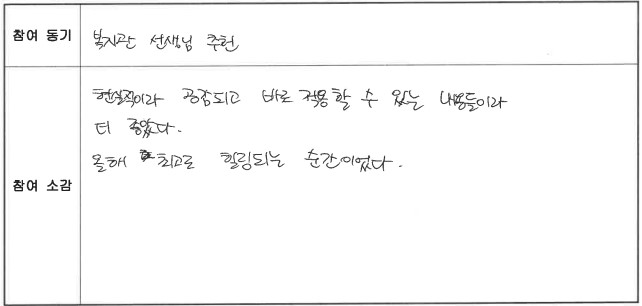 참여 동기
복지관 선생님 추천
참여 소감
현실적이라 공감되고 바로 적용할 수 있는 내용들이라
더 좋았다.
올해 최고로 힐링되는 순간이었다.